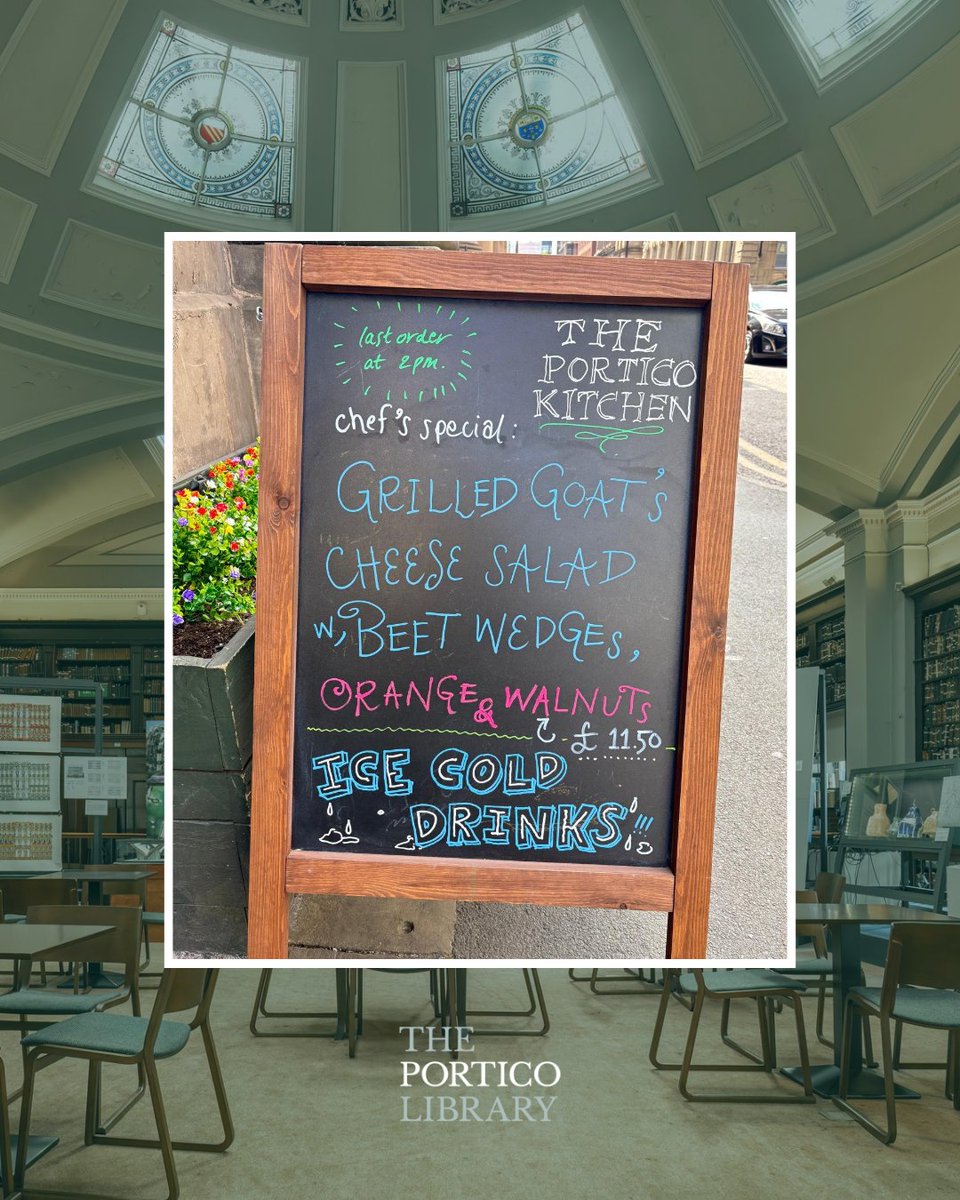 last order
at 2pm.
THE
PORTICO
KITCHEN
chef's special:
GRILLED GOAT'S
CHEESE SALAD
w, BEET WEDGES,
ORANGE & WALNUTS
£ 11.50
ICE COLD
DRINKS!!!
THE
PORTICO
LIBRARY